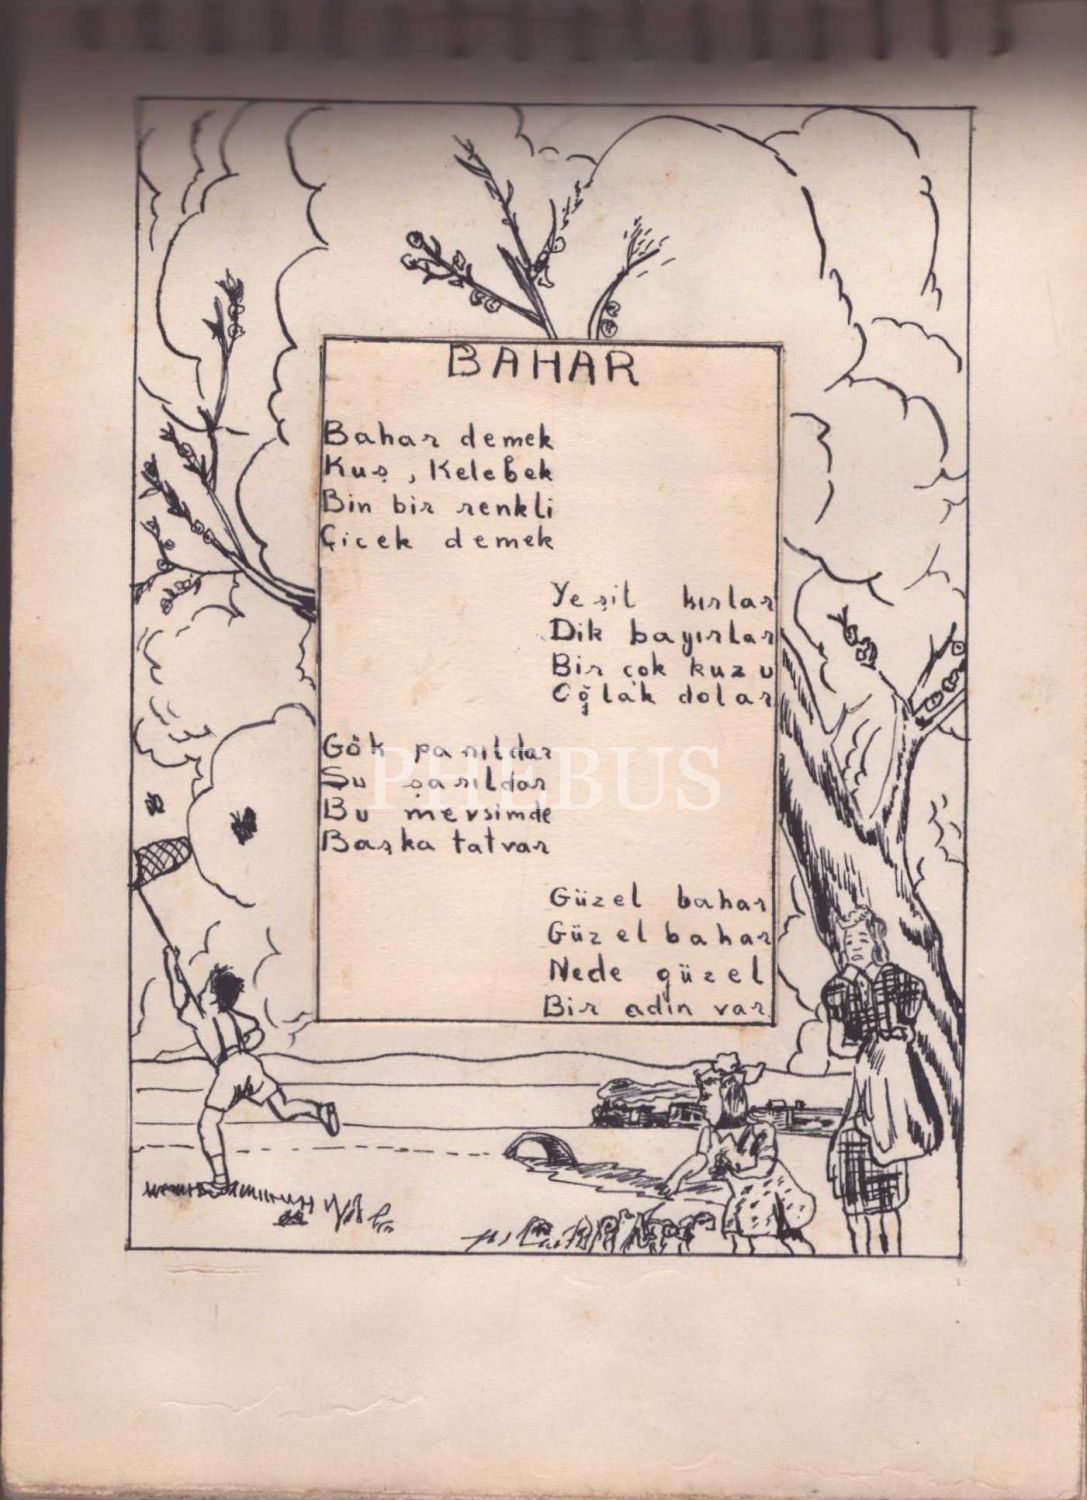 BAHAR
Bahar demek
Kuş, Kelebek
Bin bir renkli
Çicek demek
Yeşil kırlar
Dik bayırlar
Bir çok kuzu
Oğlak dolar
Gök parıldar
Su şarıldar
Bu mevsimde
Başka tat var
Güzel bahar
Güzel bahar
Nede güzel
Bir adin var
PHEBUS